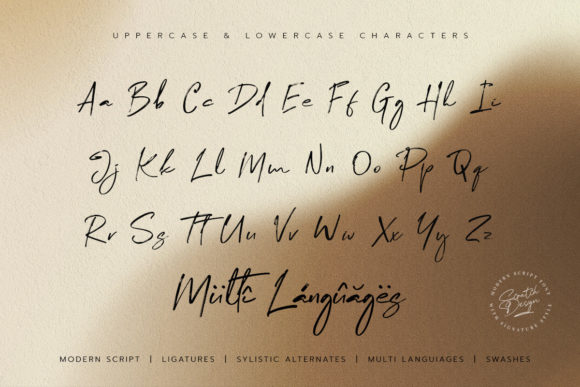 UPPERCASE & LOWERCASE CHARACTERS
Aa Bb Cc Dd Ee Ff Gg Hh Ii
Jj Kk Ll Mm Nn Oo Pp Qq
Rr Ss Tt Uu Vv Ww Xx Yy Zz
Mültî Lángûãgës
MODERN SCRIPT FONT
Scratch
Design
WITH SIGNATURE STYLE
MODERN SCRIPT | LIGATURES | SYLISTIC ALTERNATES | MULTI LANGUIAGES | SWASHES